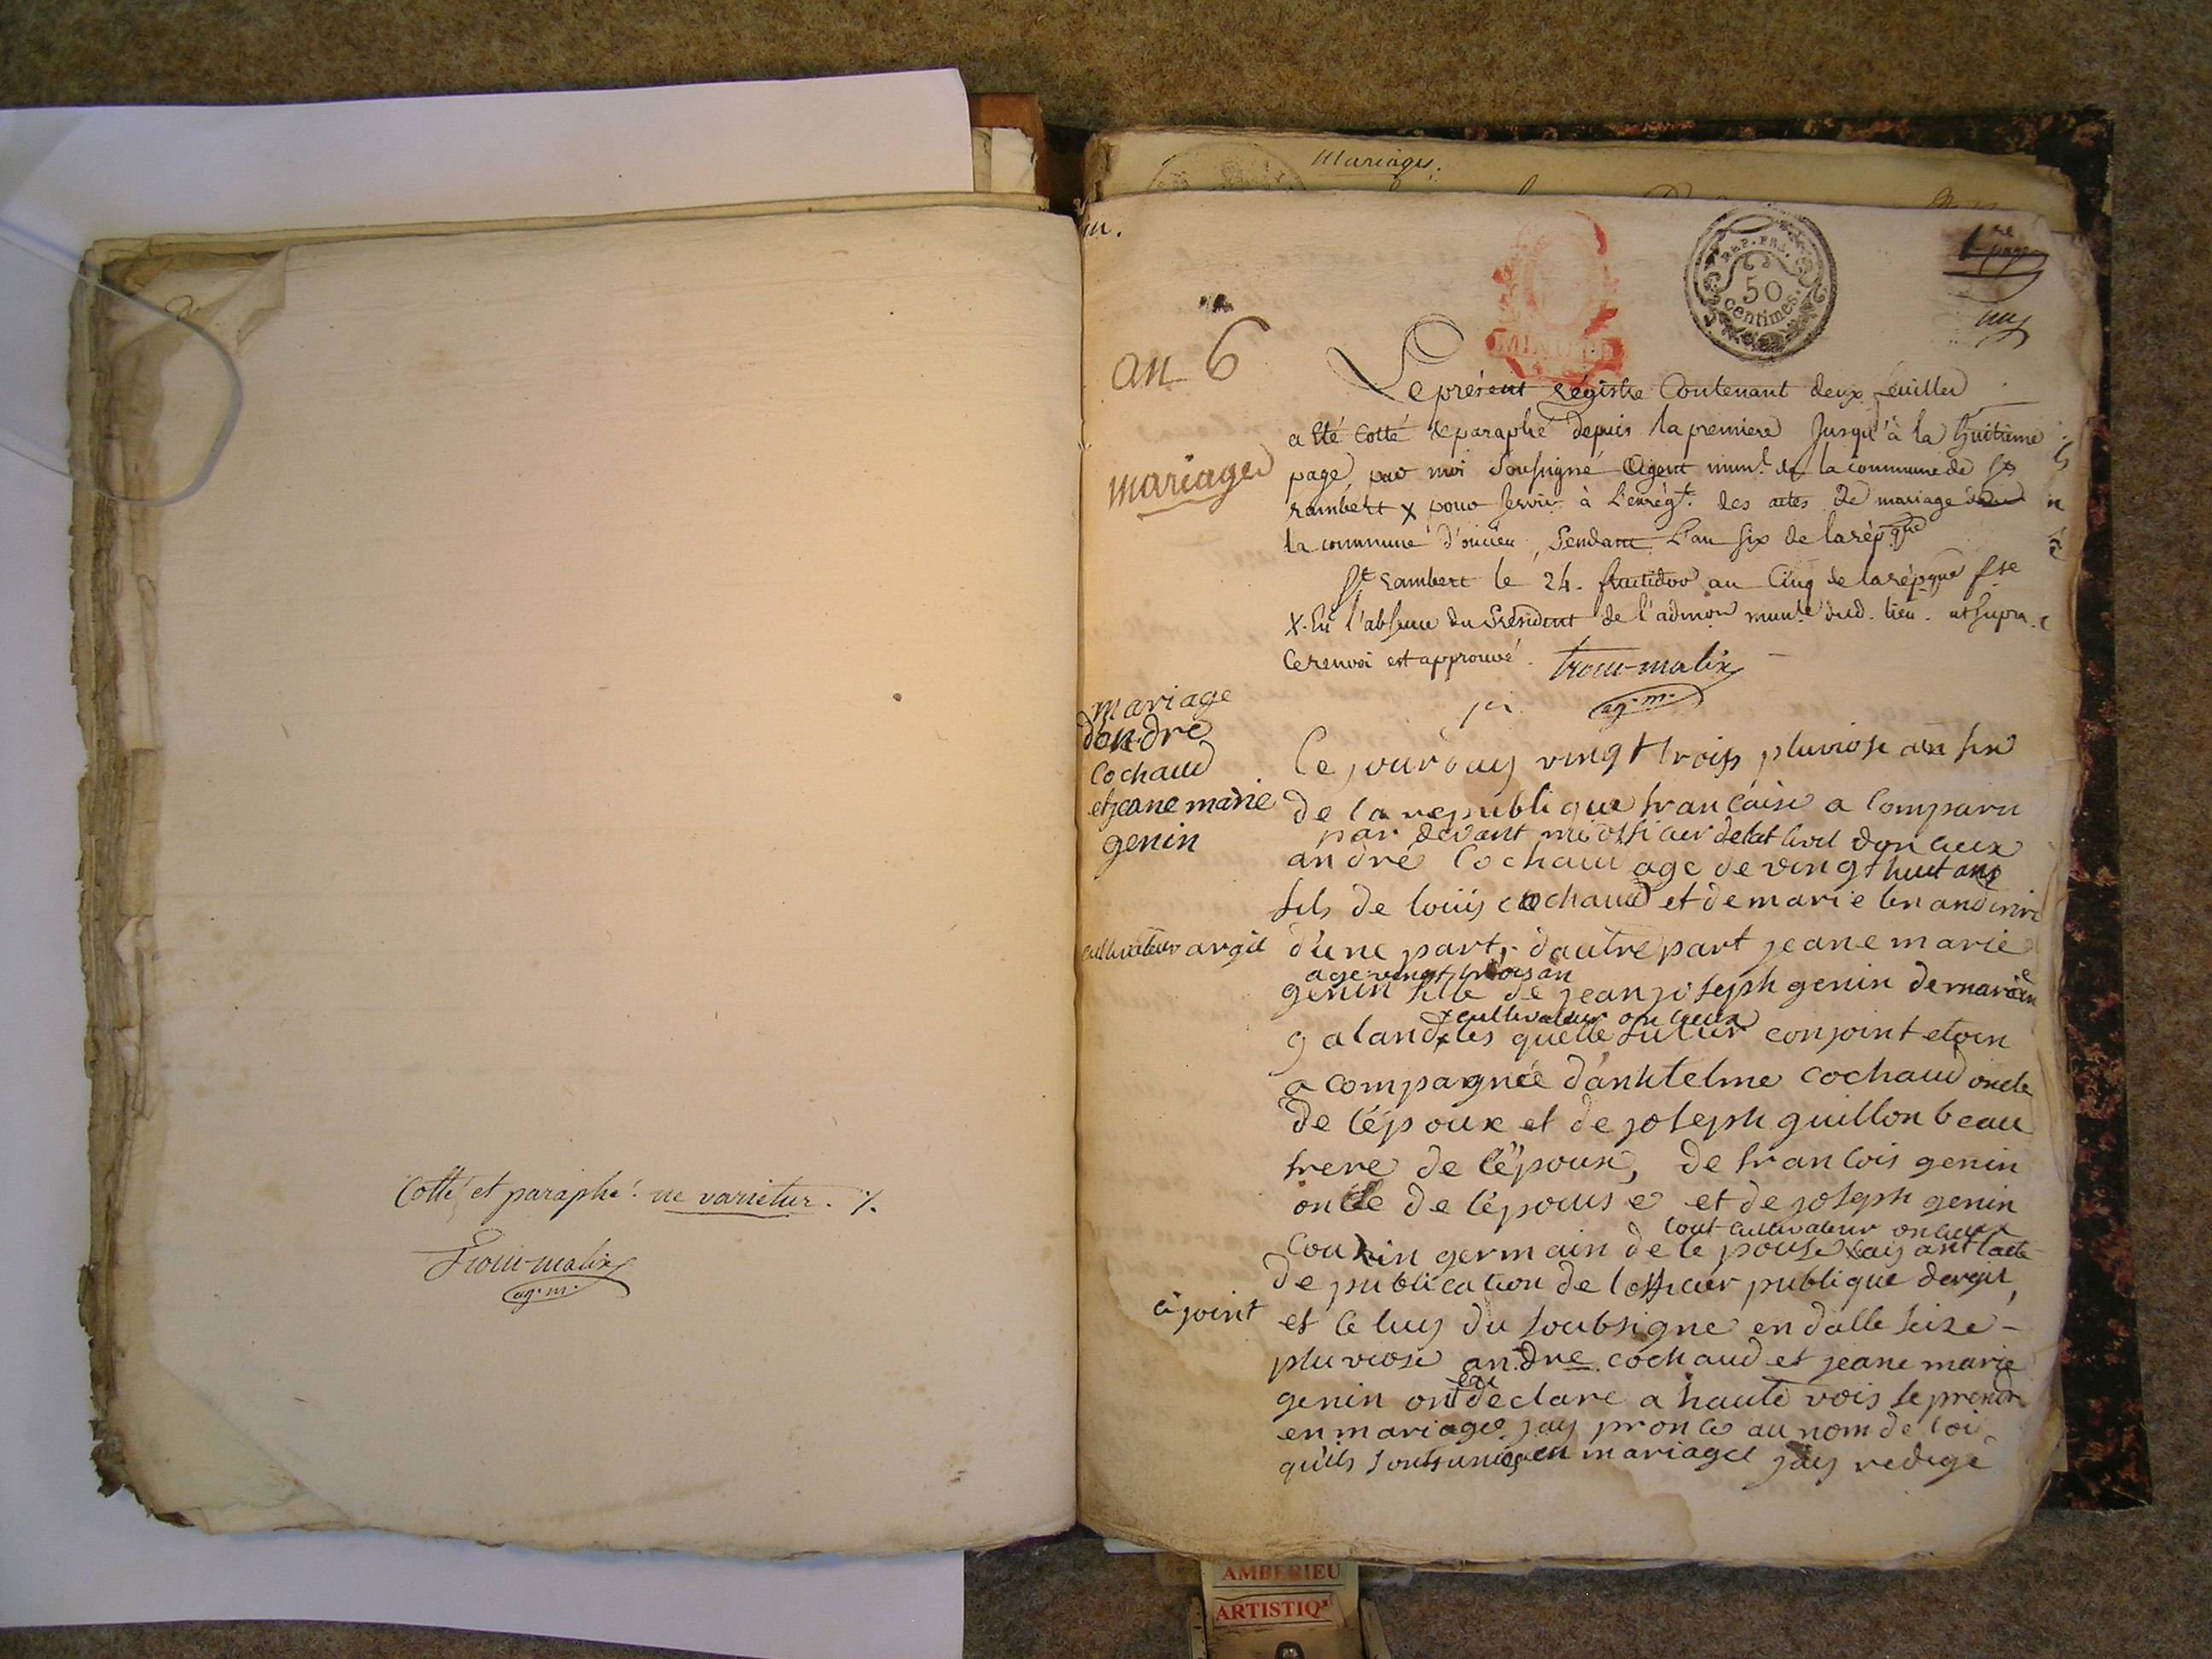 Cotté et paraphé ne varietur. /.
Trocu-malix
ag. m.
Mariages.
1re page
REP. FRA.
50
Centimes.
MINUTE
an 6
mariages
Le présent Régistre Contenant deux feuilles
a été Cotté & paraphé depuis la premiere Jusqu'à la huitieme
page, par moi Soussigné Agent munl. de la commune de St
rambert x pour servir à l'enrégt. des actes de mariage
la commune d'oncieu, Pendant L'an six de la répque
St rambert le 24. fructidor an Cinq de la répque fse
X. En l'absence du Président de l'admon munle dud. lieu. ut supra.
Ce renvoi est approuvé. Trocu-malix
ag. m.
mariage
dandre
Cochaud
et jeane marie
genin
Ce jourduy vingt trois pluviose an six
de la republique francaise a Comparu
par devant officier detat civil doncieux
andre Cochaud age de vingt huit ans
fils de loüis cochaud et de marie
cultivateur argil
d'une part, dautre part jeane marie
age vingt trois an
genin fille de jean joseph genin de marie
x cultivateur oncieux
galand x les quelle futur conjoint eton
a compagnée danthelme cochaud oncle
de lépoux et de joseph guillon beau
frere de lépoux, de francois genin
oncle de lépouse et de joseph genin
tout cultivateur oncieux
Cousin germain de le pouse x ays ant lacte
de publication de lofficier publique dargil,
ci joint
et celuy du soubsigne en dalle seize
pluviose andre cochaud et jeane marie
genin ont declare a haute vois se prendre
en mariage jay pronce au nom de loi
qu'ils sont unis en mariage jay redigé
AMBERIEU
ARTISTIQ'